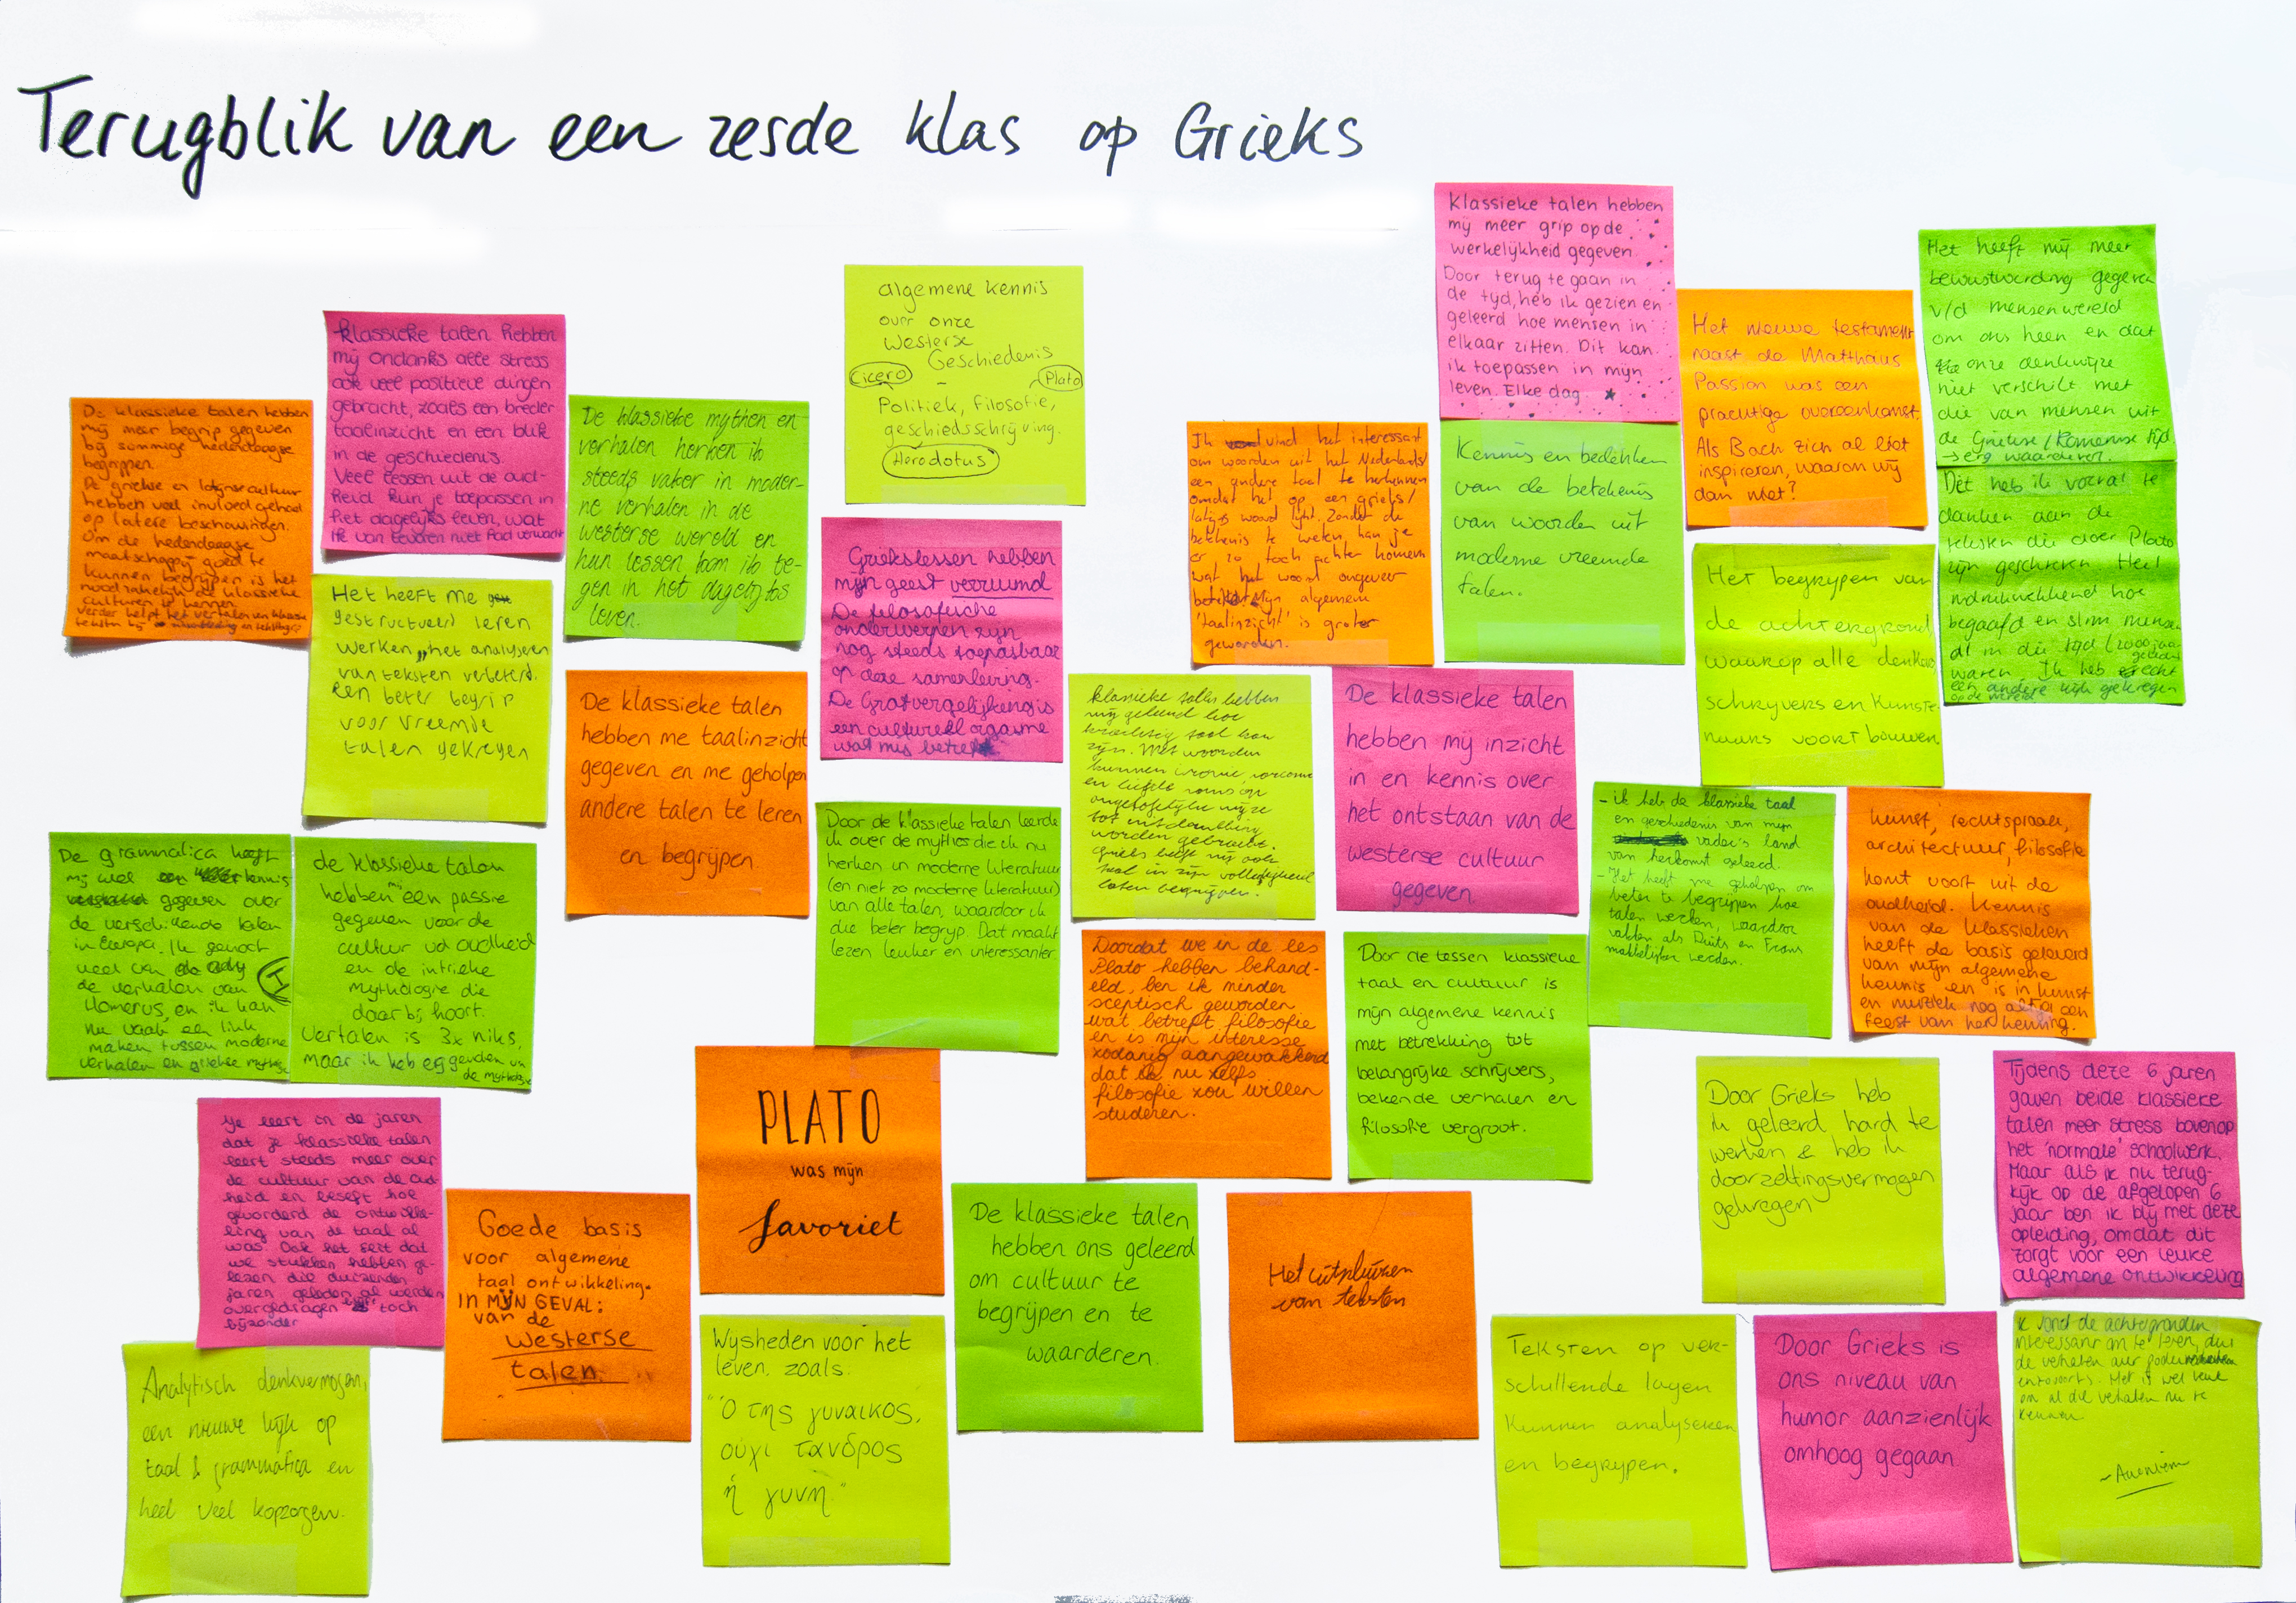 Terugblik van een zesde klas op Grieks
Klassieke talen hebben
mij meer grip op de
werkelijkheid gegeven.
Door terug te gaan in
de tijd, heb ik gezien en
geleerd hoe mensen in
elkaar zitten. Dit kan
ik toepassen in mijn
leven. Elke dag
Het heeft mij meer
bewustwording gegeven
v/d mensenwereld
om ons heen en dat
onze denkwijze
niet verschilt met
die van mensen uit
de Griekse/Romeinse tijd.
→ erg waardevol.
Dit heb ik vooral te
danken aan de
teksten die door Plato
zijn geschreven. Heel
indrukwekkend hoe
begaafd en slim mensen
al in die tijd (2000 jaar
geleden)
waren. Ik heb echt
een andere kijk gekregen
op de wereld.
algemene kennis
over onze
Westerse
Geschiedenis
Cicero - Plato
Politiek, filosofie,
geschiedsschrijving.
Herodotus
Het nieuwe testament
naast de Matthäus
Passion was een
prachtige overeenkomst.
Als Bach zich al liet
inspireren, waarom wij
dan niet?
Klassieke talen hebben
mij ondanks alle stress
ook veel positieve dingen
gebracht, zoals een breder
taalinzicht en een blik
in de geschiedenis.
Veel lessen uit de oud-
heid kun je toepassen in
het dagelijks leven, wat
ik van tevoren niet had verwacht
De klassieke mythen en
verhalen herken ik
steeds vaker in moder-
ne verhalen in de
westerse wereld en
hun lessen kom ik te-
gen in het dagelijks
leven.
De klassieke talen hebben
mij meer begrip gegeven
bij sommige hedendaagse
begrippen.
De griekse en latijnse cultuur
hebben veel invloed gehad
op latere beschouwingen.
Om de hedendaagse
maatschappij goed te
kunnen begrijpen is het
noodzakelijk de klassieke
culturen te kennen.
Verder helpt het vertalen van klassieke
teksten bij
Ik vind het interessant
om woorden uit het Nederlands/
een andere taal te herkennen
omdat het op een grieks/
latijns woord lijkt. Zonder de
betekenis te weten kan je
er zo toch achter komen
wat het woord ongeveer
betekent. Mijn algemeen
'taalinzicht' is groter
geworden.
Kennis en bedenken
van de betekenis
van woorden uit
moderne vreemde
talen.
Griekslessen hebben
mijn geest verruimd
De filosofische
onderwerpen zijn
nog steeds toepasbaar
op deze samenleving.
De Grotvergelijking is
een cultureel orgasme
wat mij betreft
Het begrijpen van
de achtergrond
waarop alle denkers,
schrijvers en kunste-
naars voortbouwen.
Het heeft me
gestructueerd leren
werken, het analyseren
van teksten verbeterd.
een beter begrip
voor vreemde
talen gekregen
De klassieke talen
hebben me taalinzicht
gegeven en me geholpen
andere talen te leren
en begrijpen.
klassieke talen hebben
mij geleerd hoe
krachtig taal kan
zijn. Met woorden
kunnen ironie, sarcasme
en liefde soms op
ongelofelijke wijze
tot uitdrukking
worden gebracht.
Grieks heeft mij ook
taal in zijn volledigheid
laten begrijpen.
De klassieke talen
hebben mij inzicht
in en kennis over
het ontstaan van de
westerse cultuur
gegeven.
- ik heb de klassieke taal
en geschiedenis van mijn
vader's land
van herkomst geleerd.
- Het heeft me geholpen om
beter te begrijpen hoe
talen werken, waardoor
vakken als Duits en Frans
makkelijker werden.
kunst, rechtspraak,
architectuur, filosofie
komt voort uit de
oudheid. Kennis
van de klassieken
heeft de basis geleverd
van mijn algemene
kennis en is in kunst
en muziek nog altijd een
feest van herkenning.
Door de klassieke talen leerde
ik over de mythes die ik nu
herken in moderne literatuur
(en niet zo moderne literatuur)
van alle talen, waardoor ik
die beter begrijp. Dat maakt
lezen leuker en interessanter.
De grammatica heeft
mij veel kennis
gegeven over
de verschillende talen
in Europa. Ik genoot
veel van
de verhalen van
Homerus, en ik kan
nu vaak een link
maken tussen moderne
verhalen en griekse mythes
de klassieke talen
hebben mij een passie
gegeven voor de
cultuur vd oudheid
en de intrieke
mythologie die
daar bij hoort.
Vertalen is 3x niks,
maar ik heb erg genoten van
de mythologie
Doordat we in de les
Plato hebben behand-
eld, ben ik minder
sceptisch geworden
wat betreft filosofie
en is mijn interesse
zodanig aangewakkerd
dat ik nu zelfs
filosofie zou willen
studeren.
Door de lessen klassieke
taal en cultuur is
mijn algemene kennis
met betrekking tot
belangrijke schrijvers,
bekende verhalen en
filosofie vergroot.
PLATO
was mijn
favoriet
Door Grieks heb
ik geleerd hard te
werken & heb ik
doorzettingsvermogen
gekregen
Tijdens deze 6 jaren
gaven beide klassieke
talen meer stress bovenop
het 'normale' schoolwerk.
Maar als ik nu terug-
kijk op de afgelopen 6
jaar ben ik blij met deze
opleiding, omdat dit
zorgt voor een leuke
algemene ontwikkeling
Je leert in de jaren
dat je klassieke talen
leert steeds meer over
de cultuur van de oud-
heid en beseft hoe
gevorderd de ontwikke-
ling van de taal al
was. Ook het feit dat
we stukken hebben ge-
lezen die duizenden
jaren geleden al werden
overgedragen blijft toch
bijzonder
Goede basis
voor algemene
taal ontwikkeling.
IN MIJN GEVAL:
van de
Westerse
talen
De klassieke talen
hebben ons geleerd
om cultuur te
begrijpen en te
waarderen.
Het uitpluizen
van teksten
Wijsheden voor het
leven, zoals:
"Ὁ της γυναικος,
οὐχι τἀνδρος
ἡ γυνη."
Analytisch denkvermogen,
een nieuwe kijk op
taal & grammatica en
heel veel kopzorgen.
Teksten op ver-
schillende lagen
kunnen analyseren
en begrijpen.
Door Grieks is
ons niveau van
humor aanzienlijk
omhoog gegaan.
Ik vond de achtergronden
interessant om te leren, dus
de verhalen over goden
enzovoorts. Het is wel leuk
om al die verhalen nu te
kennen.
- Anoniem